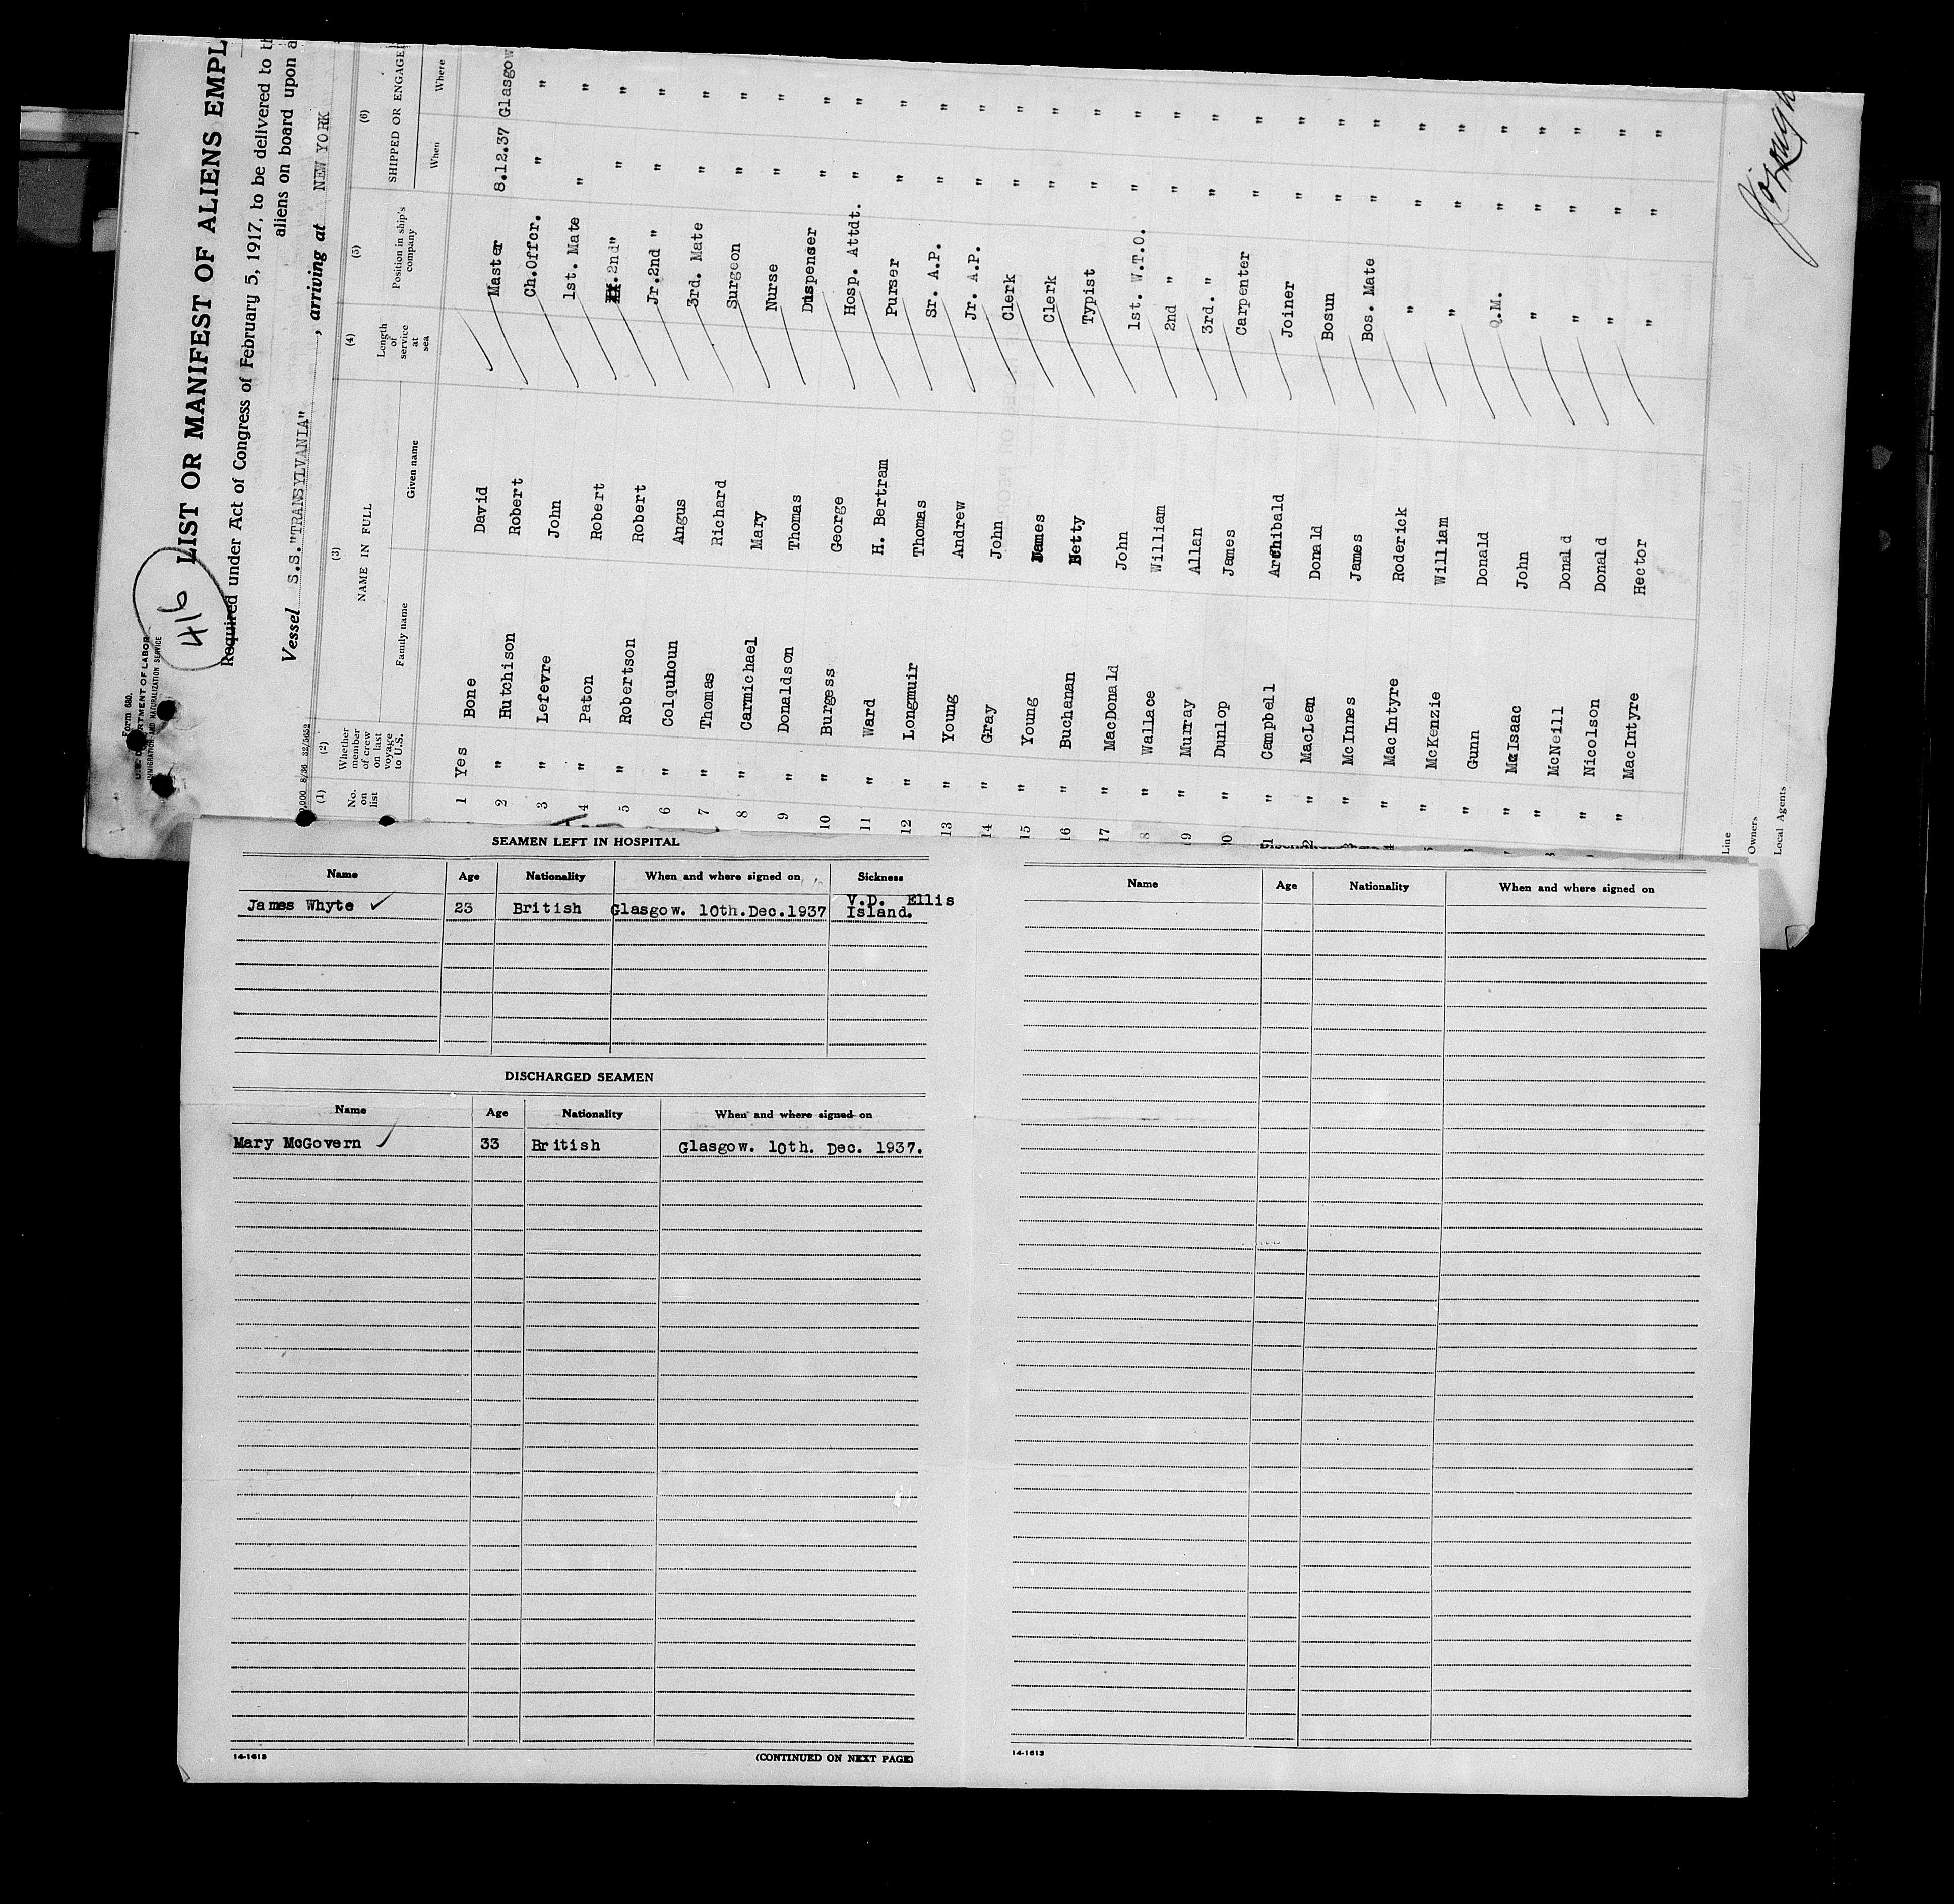 Form 680.
U.S. DEPARTMENT OF LABOR
IMMIGRATION AND NATURALIZATION SERVICE
416
LIST OR MANIFEST OF ALIENS EMPL
Required under Act of Congress of February 5, 1917, to be delivered to th
aliens on board upon a
Vessel S.S. "TRANSYLVANIA" , arriving at NEW YORK
(1) (2) (3) (4) (5) (6)
No. on list Whether member of crew on last voyage to U.S. NAME IN FULL Length of service at sea Position in ship's company SHIPPED OR ENGAGED
Family name Given name When Where
1 Yes Bone David Master 8.12.37 Glasgow
2 " Hutchison Robert Ch.Offcr. " "
3 " Lefevre John 1st. Mate " "
4 " Paton Robert .2nd" " "
5 " Robertson Robert Jr.2nd " " "
6 " Colquhoun Angus 3rd. Mate " "
7 " Thomas Richard Surgeon " "
8 " Carmichael Mary Nurse " "
9 " Donaldson Thomas Dispenser " "
10 " Burgess George Hosp. Attdt. " "
11 " Ward H. Bertram Purser " "
12 " Longmuir Thomas Sr. A.P. " "
13 " Young Andrew Jr. A.P. " "
14 " Gray John Clerk " "
15 " Young James Clerk " "
16 " Buchanan Betty Typist " "
17 " MacDonald John 1st. W.T.O. " "
8 " Wallace William 2nd " " "
9 " Murray Allan 3rd. " " "
0 " Dunlop James Carpenter " "
1 " Campbell Archibald Joiner " "
2 " MacLean Donald Bosun " "
3 " McInnes James Bos. Mate " "
4 " MacIntyre Roderick " " "
" McKenzie William " " "
" Gunn Donald Q.M. " "
" McIsaac John " " "
" McNeill Donald " " "
" Nicolson Donald " " "
" MacIntyre Hector " " "
Line
Owners
Local Agents
SEAMEN LEFT IN HOSPITAL
Name Age Nationality When and where signed on Sickness
James Whyte 23 British Glasgow. 10th.Dec.1937 V.D. Ellis
Island.
DISCHARGED SEAMEN
Name Age Nationality When and where signed on
Mary McGovern 33 British Glasgow. 10th. Dec. 1937.
14-1613 (CONTINUED ON NEXT PAGE)
Name Age Nationality When and where signed on
14-1613